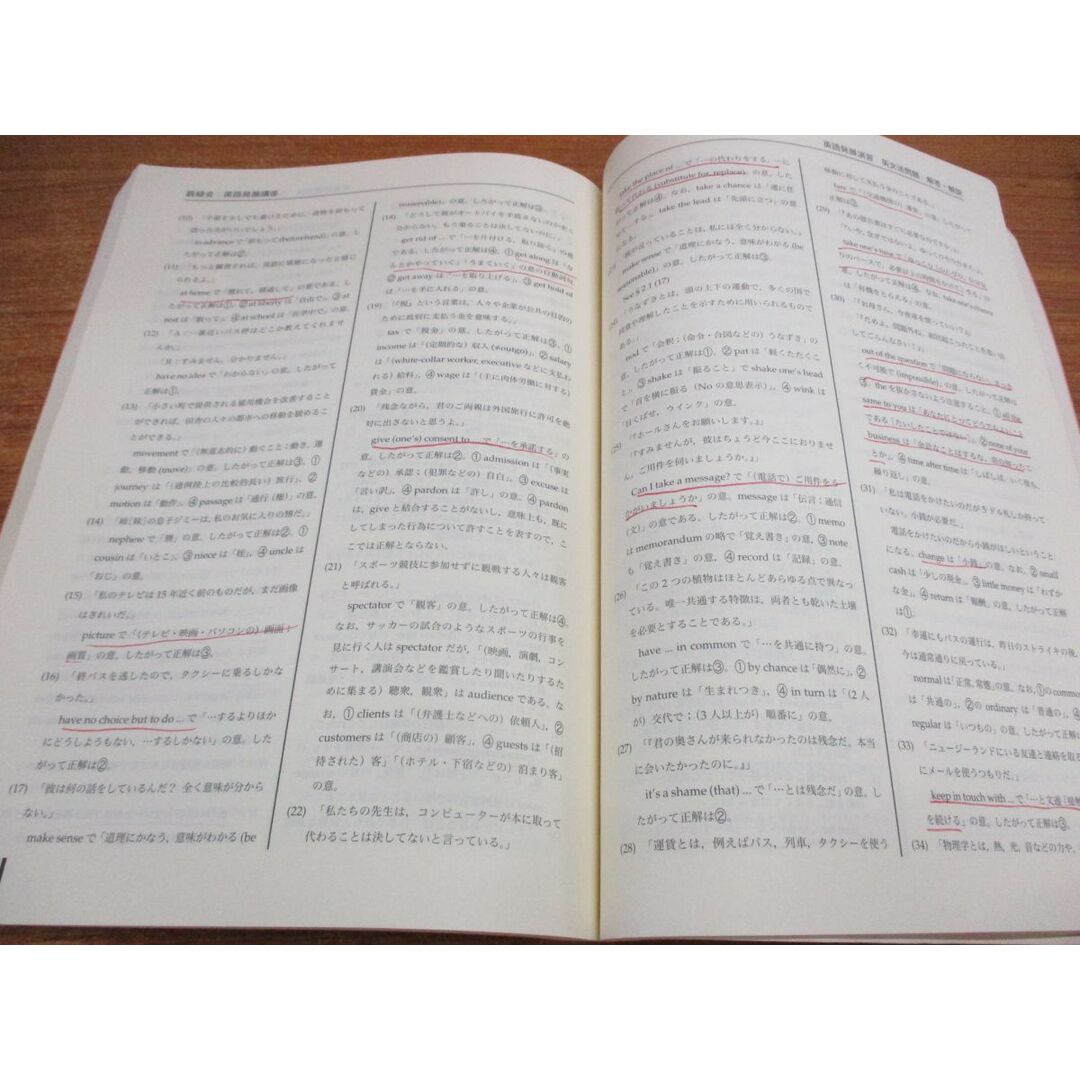 鉄緑会 英語発展講座
(10)
in advance で「前もって (beforehand)」の意。し
たがって正解は②。
(11)
(12) 「A:一番近いバス停はどこか教えてくれませ
んか。」
「B:すみません，分かりません。」
have no idea で「わからない」の意。したがって
正解は①。
(13) 「小さい町で提供される雇用機会を改善すること
ができれば，田舎の人々の都市への移動を緩めるこ
とができる。」
movement で「(無意志的に) 動くこと；動き，運
動，移動 (move)」の意。したがって正解は③。①
journey は「(通例陸上の比較的長い) 旅行」，②
motion は「動作」，④ passage は「通行 (権)」の意。
(14) 「姉[妹]の息子ジミーは，私のお気に入りの甥だ。」
nephew で「甥」の意。したがって正解は②。①
cousin は「いとこ」，③ niece は「姪」，④ uncle は
「おじ」の意。
(15) 「私のテレビは15年近く前のものだが，まだ画像
はきれいだ。」
picture で「(テレビ・映画・パソコンの) 画面；
画質」の意。したがって正解は③。
(16) 「終バスを逃したので，タクシーに乗るしかな
かった。」
have no choice but to do ... で「…するよりほか
にどうしようもない，…するしかない」の意。した
がって正解は②。
(17) 「彼は何の話をしているんだ？ 全く意味が分から
ない。」
make sense で「道理にかなう，意味がわかる (be
reasonable)」の意。したがって正解は③。
(18) 「どうして彼がオートバイを手放さないのか全く
分からない。もう乗ることは決してないのに。」
get rid of ... で「…を片付ける，取り除く」の意
である。したがって正解は④。① get along は「な
んとかやっていく」「うまくいく」の意の自動詞句，
② get away は「…を取り上げる」，③ get hold of
は「…を手に入れる」の意。
(19) 「『税』という言葉は，人々や企業が公共の目的の
ために政府に支払う金を意味する。」
tax で「税金」の意。したがって正解は③。①
income は「(定期的な) 収入 (≠outgo)」，② salary
は「(white-collar worker, executive などに支払わ
れる) 給料」，④ wage は「(主に肉体労働に対する)
賃金」の意。
(20) 「残念ながら，君のご両親は外国旅行に許可を絶
対に出さないと思うよ。」
give (one's) consent to ... で「…を承諾する」の
意。したがって正解は②。① admission は「(事実
などの) 承認；(犯罪などの) 自白」，③ excuse は
「言い訳」，④ pardon は「許し」の意。④ pardon
は，give と結合することがないし，意味上も，既に
してしまった行為について許すことを表すので，こ
こでは正解とならない。
(21) 「スポーツ競技に参加せずに観戦する人々は観客
と呼ばれる。」
spectator で「観客」の意。したがって正解は④。
なお，サッカーの試合のようなスポーツの行事を
見に行く人は spectator だが，「(映画，演劇，コン
サート，講演会などを鑑賞したり聞いたりするた
めに集まる) 聴衆，観衆」は audience である。な
お，① clients は「(弁護士などへの) 依頼人」，②
customers は「(商店の) 顧客」，④ guests は「(招
待された) 客」「(ホテル・下宿などの) 泊まり客」
の意。
(22) 「私たちの先生は，コンピューターが本に取って
代わることは決してないと言っている。」
英語発展演習 英文法問題 解答・解説
take the place of ... で「…の代わりをする，…に
取って代わる (substitute for, replace)」の意。した
がって正解は④。なお，take a chance は「運に任
せてする」，take the lead は「先頭に立つ」の意
make sense で「道理にかなう，意味がわかる (be
reasonable)」の意。したがって正解は③。
See § 2.1 (17)
「うなずきとは，頭の上下の運動で，多くの国で
同意や理解したことを示すために用いられるもので
ある。」
nod で「会釈；(命令・合図などの) うなずき」の
意。したがって正解は①。② pat は「軽くたたくこ
と」，③ shake は「振ること」で shake one's head
で「首を横に振る (No の意思表示)」，④ wink は
「目くばせ，ウインク」の意。
(25) 「ホールさんをお願いします。」
「すみませんが，彼はちょうど今ここにおりませ
ん。ご用件を伺いましょうか。」
Can I take a message? で「(電話で) ご用件をう
かがいましょうか」の意。message は「伝言；通信
(文)」の意である。したがって正解は②。① memo
は memorandum の略で「覚え書き」の意，③ note
も「覚え書き」の意，④ record は「記録」の意。
(26) 「この2つの植物はほとんどあらゆる点で異なっ
ている。唯一共通する特徴は，両者とも乾いた土壌
を必要とすることである。」
have ... in common で「…を共通に持つ」の意。
したがって正解は③。① by chance は「偶然に」，②
by nature は「生まれつき」，④ in turn は「(2人
が) 交代で；(3人以上が) 順番に」の意。
(27) 「『君の奥さんが来られなかったのは残念だ。本当
に会いたかったのに。』」
it's a shame (that) ... で「…とは残念だ」の意。し
たがって正解は②。
(28) 「運賃とは，例えばバス，列車，タクシーを使う
移動に対して支払う金のことである。」
fare で「(交通機関の) 運賃」
(29)
take one's time で「ゆっくりやる，
(30) 「お母さん，今夜車を使っていい？」
「だめよ，問題外ね。
してごらんなさい！」
out of the question で「問題にならない，まった
く不可能で (impossible)」の意。したがって正解は
③。the を抜かさないよう注意すること。① all the
same to you は「あなたにとってどうでもよいこと
である(たいしたことではない)」，② none of your
business は「余計なことはするな，
とか」，④ time after time は「しばしば，いく度も，
繰り返し」の意。
(31) 「私は電話をかけたいのだが5ドル札しか持って
いない。小銭が必要だ。」
電話をかけたいのだから小銭がほしいということ
になる。change は「小銭」の意。なお，② small
cash は「少しの現金」，③ little money は「わずか
な金」，④ return は「報酬」の意。したがって正解
は①。
(32) 「幸運にもバスの運行は，昨日のストライキの後，
今は通常通りに戻っている。」
normal は「正常，常態」の意。なお，①の common
は「共通の」，②の ordinary は「普通の」，④
regular は「いつもの」の意。したがって正解は
(33) 「ニュージーランドにいる友達と連絡を取る
にメールを使うつもりだ。」
keep in touch with ... で「…と文通［接触］
を続ける」の意。したがって正解は③。
(34) 「物理学とは，熱，光，音などの力や，